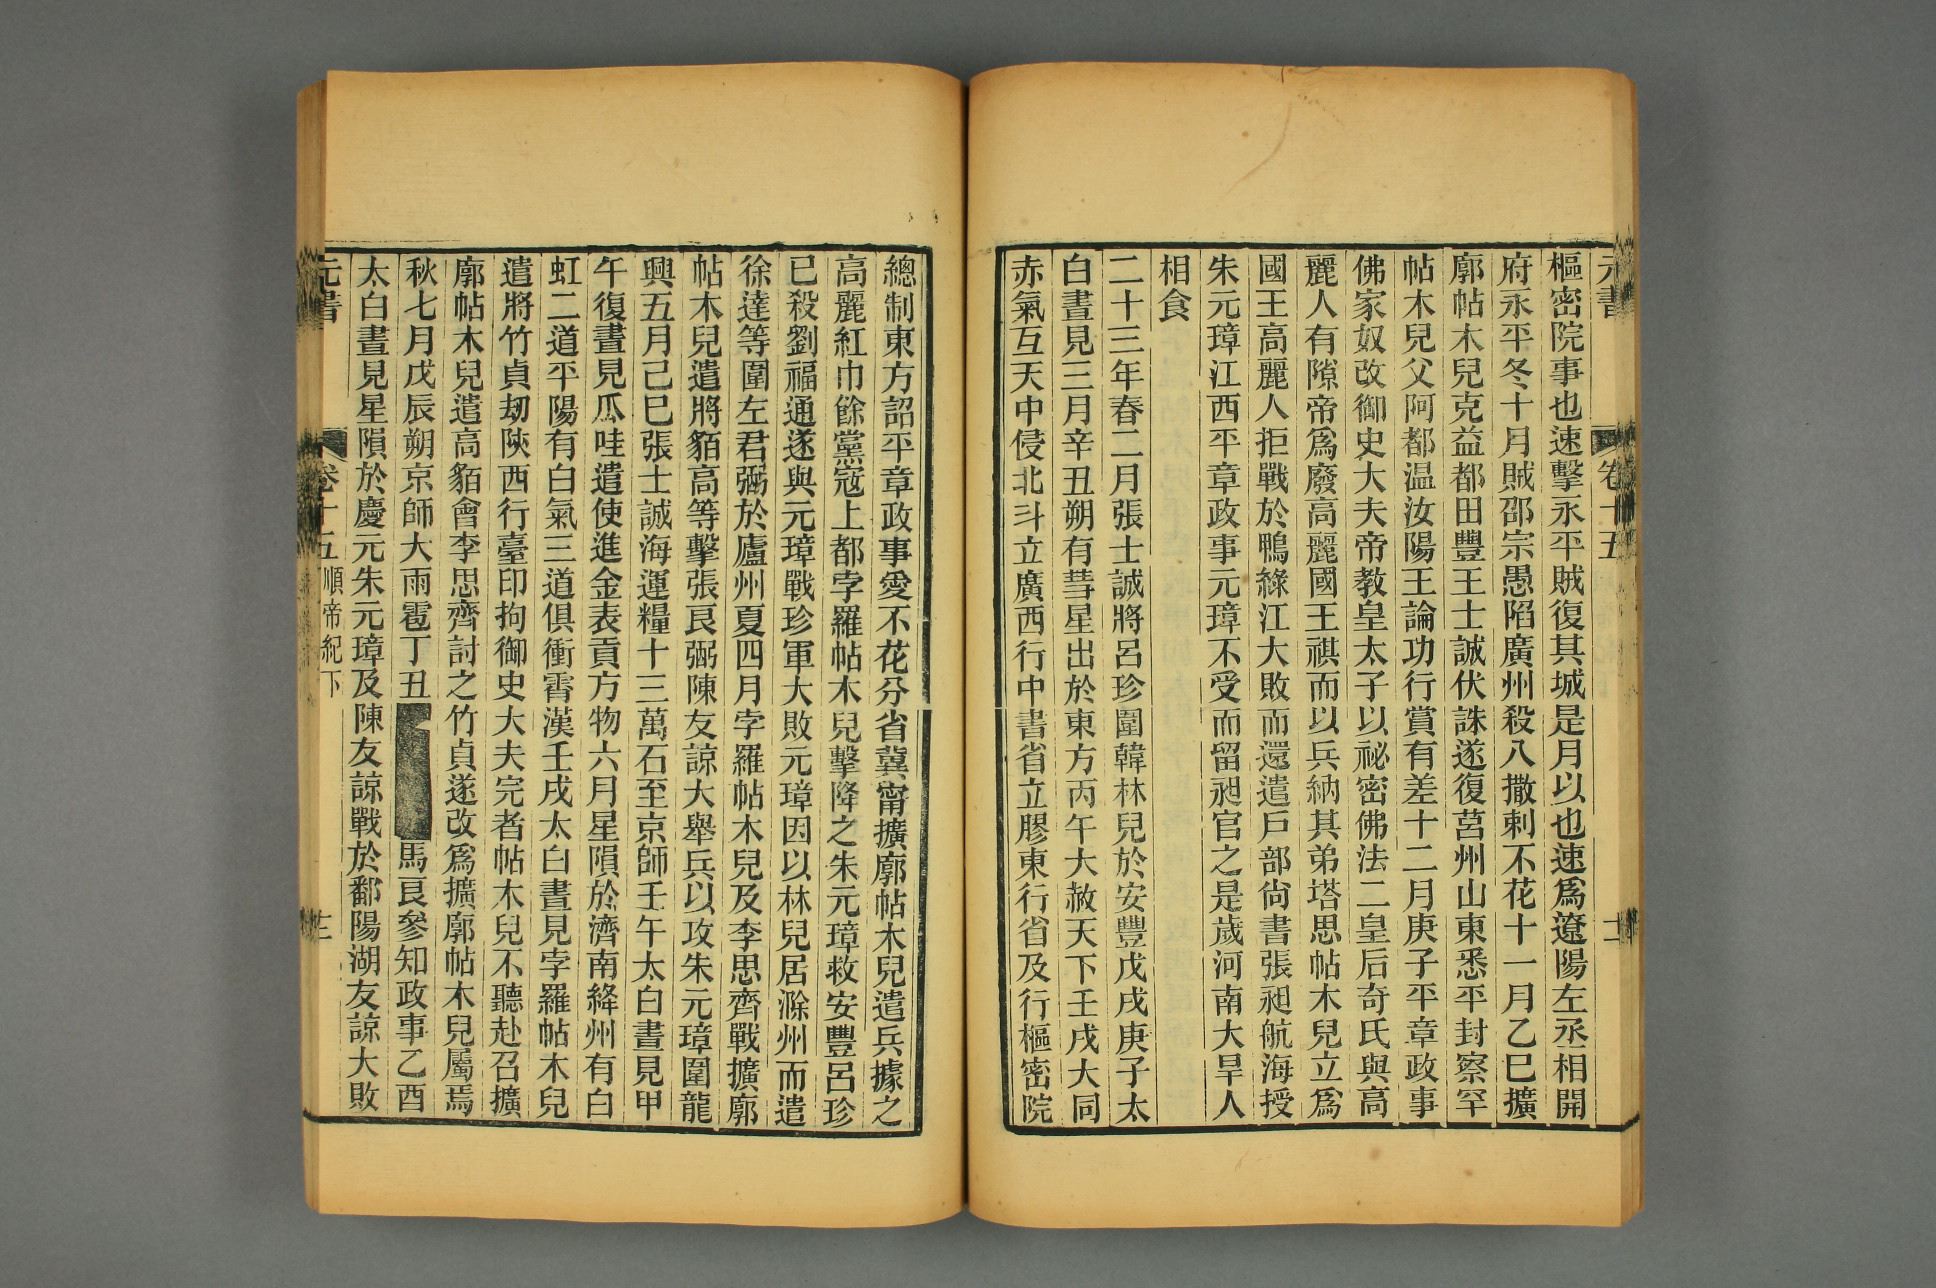 元書
卷十五
樞密院事也速擊永平賊復其城是月以也速爲遼陽左丞相開
府永平冬十月賊邵宗愚陷廣州殺八撒剌不花十一月乙巳擴
廓帖木兒克益都田豐王士誠伏誅遂復莒州山東悉平封察罕
帖木兒父阿都温汝陽王論功行賞有差十二月庚子平章政事
佛家奴改御史大夫帝教皇太子以祕密佛法二皇后奇氏與高
麗人有隙帝爲廢高麗國王祺而以兵納其弟塔思帖木兒立爲
國王高麗人拒戰於鴨綠江大敗而還遣戸部尙書張昶航海授
朱元璋江西平章政事元璋不受而留昶官之是歲河南大旱人
相食
二十三年春二月張士誠將呂珍圍韓林兒於安豐戊戌庚子太
白晝見三月辛丑朔有彗星出於東方丙午大赦天下壬戌大同
赤氣互天中侵北斗立廣西行中書省立膠東行省及行樞密院
總制東方詔平章政事愛不花分省冀甯擴廓帖木兒遣兵據之
高麗紅巾餘黨寇上都孛羅帖木兒擊降之朱元璋救安豐呂珍
已殺劉福通遂與元璋戰珍軍大敗元璋因以林兒居滁州而遣
徐達等圍左君弼於廬州夏四月孛羅帖木兒及李思齊戰擴廓
帖木兒遣將貊高等擊張良弼陳友諒大舉兵以攻朱元璋圍龍
興五月己巳張士誠海運糧十三萬石至京師壬午太白晝見甲
午復晝見瓜哇遣使進金表貢方物六月星隕於濟南絳州有白
虹二道平陽有白氣三道俱衝霄漢壬戌太白晝見孛羅帖木兒
遣將竹貞刼陝西行臺印拘御史大夫完者帖木兒不聽赴召擴
廓帖木兒遣高貊會李思齊討之竹貞遂改爲擴廓帖木兒屬焉
秋七月戊辰朔京師大雨雹丁丑馬良參知政事乙酉
太白晝見星隕於慶元朱元璋及陳友諒戰於鄱陽湖友諒大敗
元書
卷十五
順帝紀下